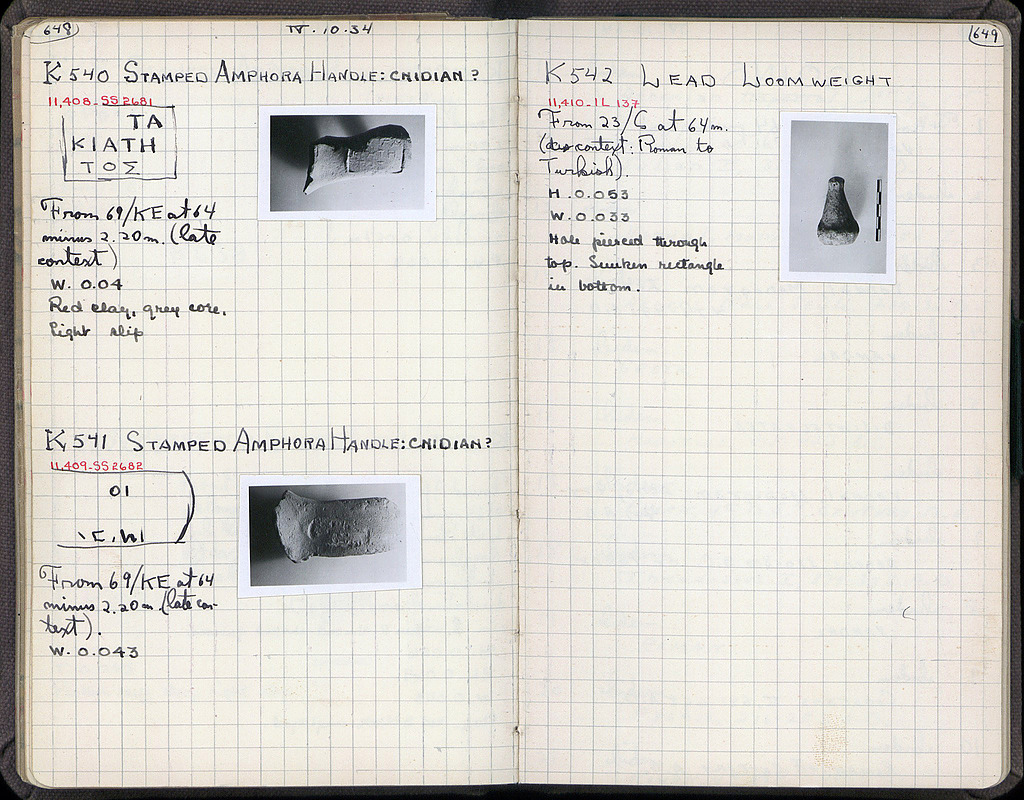 648
IV.10.34
K 540 STAMPED AMPHORA HANDLE: CNIDIAN?
11,408-SS 2681
TA
ΚΙΑΤΗ
ΤΟΣ
From 69/KE at 64
minus 2.20m. (late
context)
W. 0.04
Red clay, grey core.
Light slip
K 541 STAMPED AMPHORA HANDLE: CNIDIAN?
11,409-SS 2682
ΟΙ
From 69/KE at 64
minus 2.20m (late con-
text).
W. 0.043
649
K 542 LEAD LOOMWEIGHT
11,410-IL 137
From 23/ at 64m.
(context: Roman to
Turkish).
H. 0.053
W. 0.033
Hole pierced through
top. Sunken rectangle
in bottom.